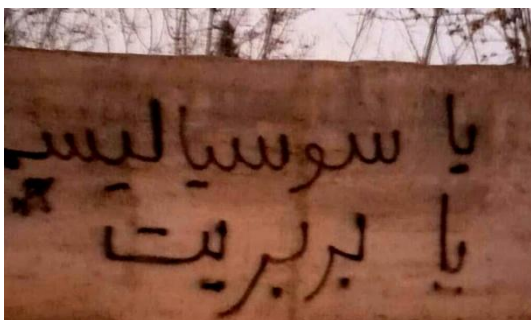 یا سوسیالیسـ
یا بربریت